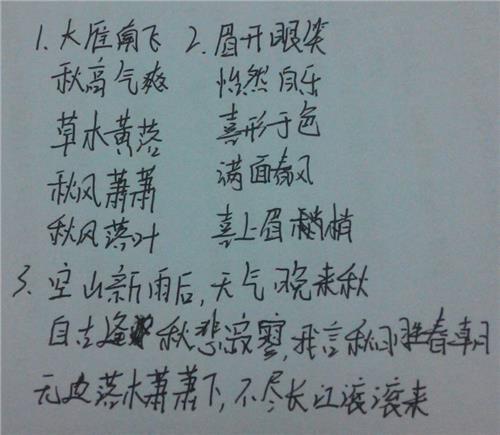 1.大雁南飞 2.眉开眼笑
秋高气爽 怡然自乐
草木黄落 喜形于色
秋风萧萧 满面春风
秋风落叶 喜上眉梢
3.空山新雨后,天气晚来秋
自古逢秋悲寂寥,我言秋日胜春朝
无边落木萧萧下,不尽长江滚滚来